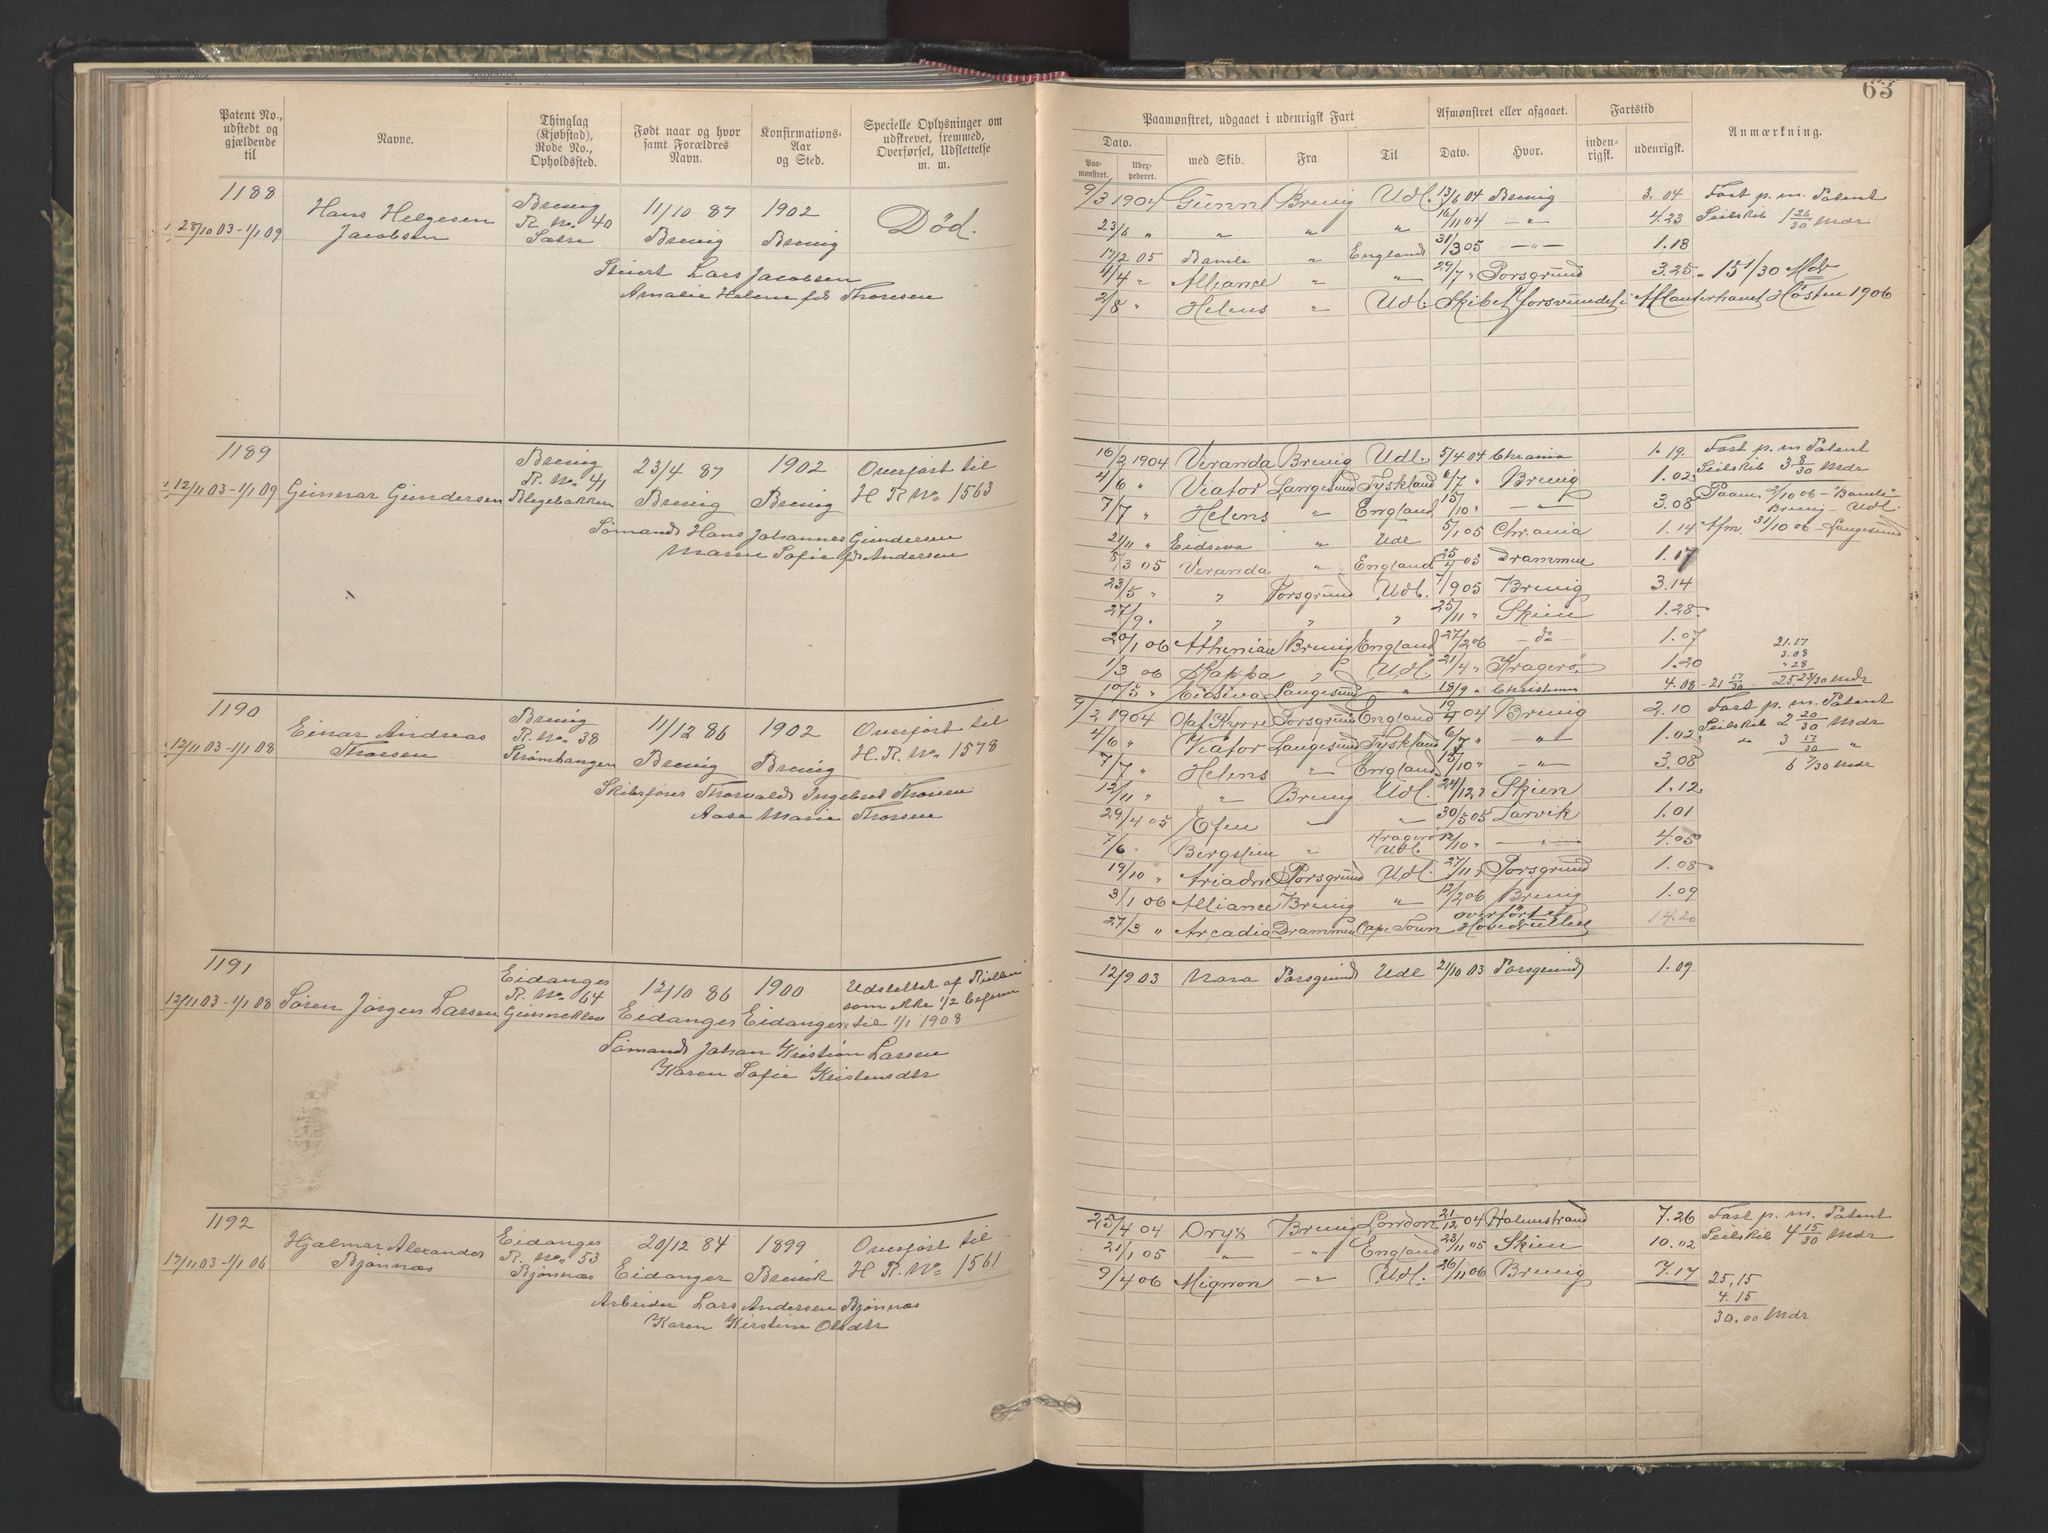 63
Patent No., udstedt og gjældende til
Navne.
Thinglag (Kjøbstad), Rode No., Opholdssted.
Født naar og hvor samt Forældres Navn.
Konfirmations- Aar og Sted.
Specielle Oplysninger om udskrevet, fremmed, Overførsel, Udslettelse m. m.
Paamønstret, udgaaet i udenrigsk Fart
Afmønstret eller afgaaet.
Fartstid
Anmærkning.
Dato.
Paa-mønstret.
med Skib.
Fra
Til
Dato.
Hvor.
inden-rigsk.
udenrigsk.
1188
28/10 03-1/1 09
Hans Helgesen
Jacobsen
Brevig
R. No. 40
11/10 87
Brevig
1902
Brevig
Død.
Lars Jacobsen
Amalie Helene fdt Thoresen
9/3 1904 Gunn Brevig Udl. 13/6 04 Brevig 3.04 Fart p. m. Patent
23/6 " " " " 16/11 04 -"- 4.23 Seilskib 1 26/30 Mdr
17/2 05 Bamle " England 31/3 05 -"- 1.18
4/4 " Alliance " " 29/7 " Porsgrund 3.25
2/8 " Helens " Udl. Skibet forsvundet i Atlanterhavet Høsten 1906
1189
12/11 03-1/1 09
Gunnar Gundersen
Brevig
R. No. 41
Blegebakken
23/4 87
Brevig
1902
Brevig
Overført til
H. R. No. 1563
Sømand Hans Johannes Gundersen
Maren Sofie f. Andersen
16/2 1904 Veranda Brevig Udl. 5/4 04 Chrania 1.19 Fart p. m. Patent
4/6 " Viator Langesund Tyskland 6/7 " Brevig 1.02 Seilskib 3 8/30 Mdr
7/7 " Helens " England 15/10 " -"- 3.08 Paam. 2/10 06 - "Bamle"
Brevig - Udl.
21/11 " Eidsiva " Udl 5/1 05 Chrania 1.14 Afm. 31/10 06 - Langesund
5/3 05 Veranda " England 25/4 05 Drammen 1.17
23/5 " " Porsgrund Udl. 7/9 05 Brevig 3.14
27/9 " " " " 25/11 " Skien 1.28
20/1 06 Athenian Brevig England 27/2 06 - do - 1.07 21.17
3.08
1/3 06 Kappa " Udl. 21/4 " Kragerø 1.20 " 28
10/5 " Eidsiva Langesund " 18/9 " 4.08 - 21 17/30 25.23/30 Mdr
1190
12/11 03-1/1 08
Einar Andreas
Thorsen
Brevig
R. No. 38
Strømtangen
11/12 86
Brevig
1902
Brevig
Overført til
H. R. No. 1578
Skibsfører Thorvald Ingebret Thorsen
Aase Marie Thorsen
9/2 1904 Olaf Kyrre Porsgrund England 19/4 04 Brevig 2.10 Fart p. m. Patent
4/6 " Viator Langesund Tyskland 6/7 " -"- 1.02 Seilskib 2 20/30 Mdr
do 3 17/30 "
7/7 " Helens " England 15/10 " -"- 3.08 6 7/30 Mdr
12/11 " " Brevig Udl. 24/12 " Skien 1.12
29/4 05 Efen " " 30/5 05 Larvik 1.01
7/6 " Bergslien " Kragerø Udl. 12/10 " -"- 4.05
19/10 " Ariadne Porsgrund Udl. 27/11 " Porsgrund 1.08
3/1 06 Alliance Brevig " 12/2 06 Brevig 1.09
27/3 " Arcadia Drammen Cape Town overført et Hovedrullen 14.20
1191
12/11 03-1/1 08
Søren Jørgen Larsen
Eidanger
R. No. 64
Gunneklev
12/10 86
Eidanger
1900
Eidanger
Udslettet af Rullen
som ikke 1/2 befaren
til 1/1 1908
Sømand Johan Kristian Larsen
Karen Sofie Kristensdtr
12/9 03 Nora Porsgrund Udl 21/10 03 Porsgrund 1.09
1192
17/11 03-1/1 06
Hjalmar Alexander
Bjønnæs
Eidanger
R. No. 53
Bjønnæs
20/12 84
Eidanger
1899
Brevik
Overført til
H R. No. 1561
Arbeider Lars Andersen Bjønnæs
Karen Kirstine Olsdtr
25/4 04 Oryx Brevig London 21/12 04 Holmestrand 7.26 Fart p. m. Patent
21/1 05 -"- -"- England 23/11 05 Skien 10.02 Seilskib 4 15/30 Mdr
9/4 06 Mignon -"- Udl. 26/11 06 Brevig 7.17 25.15
4.15
30.00 Mdr